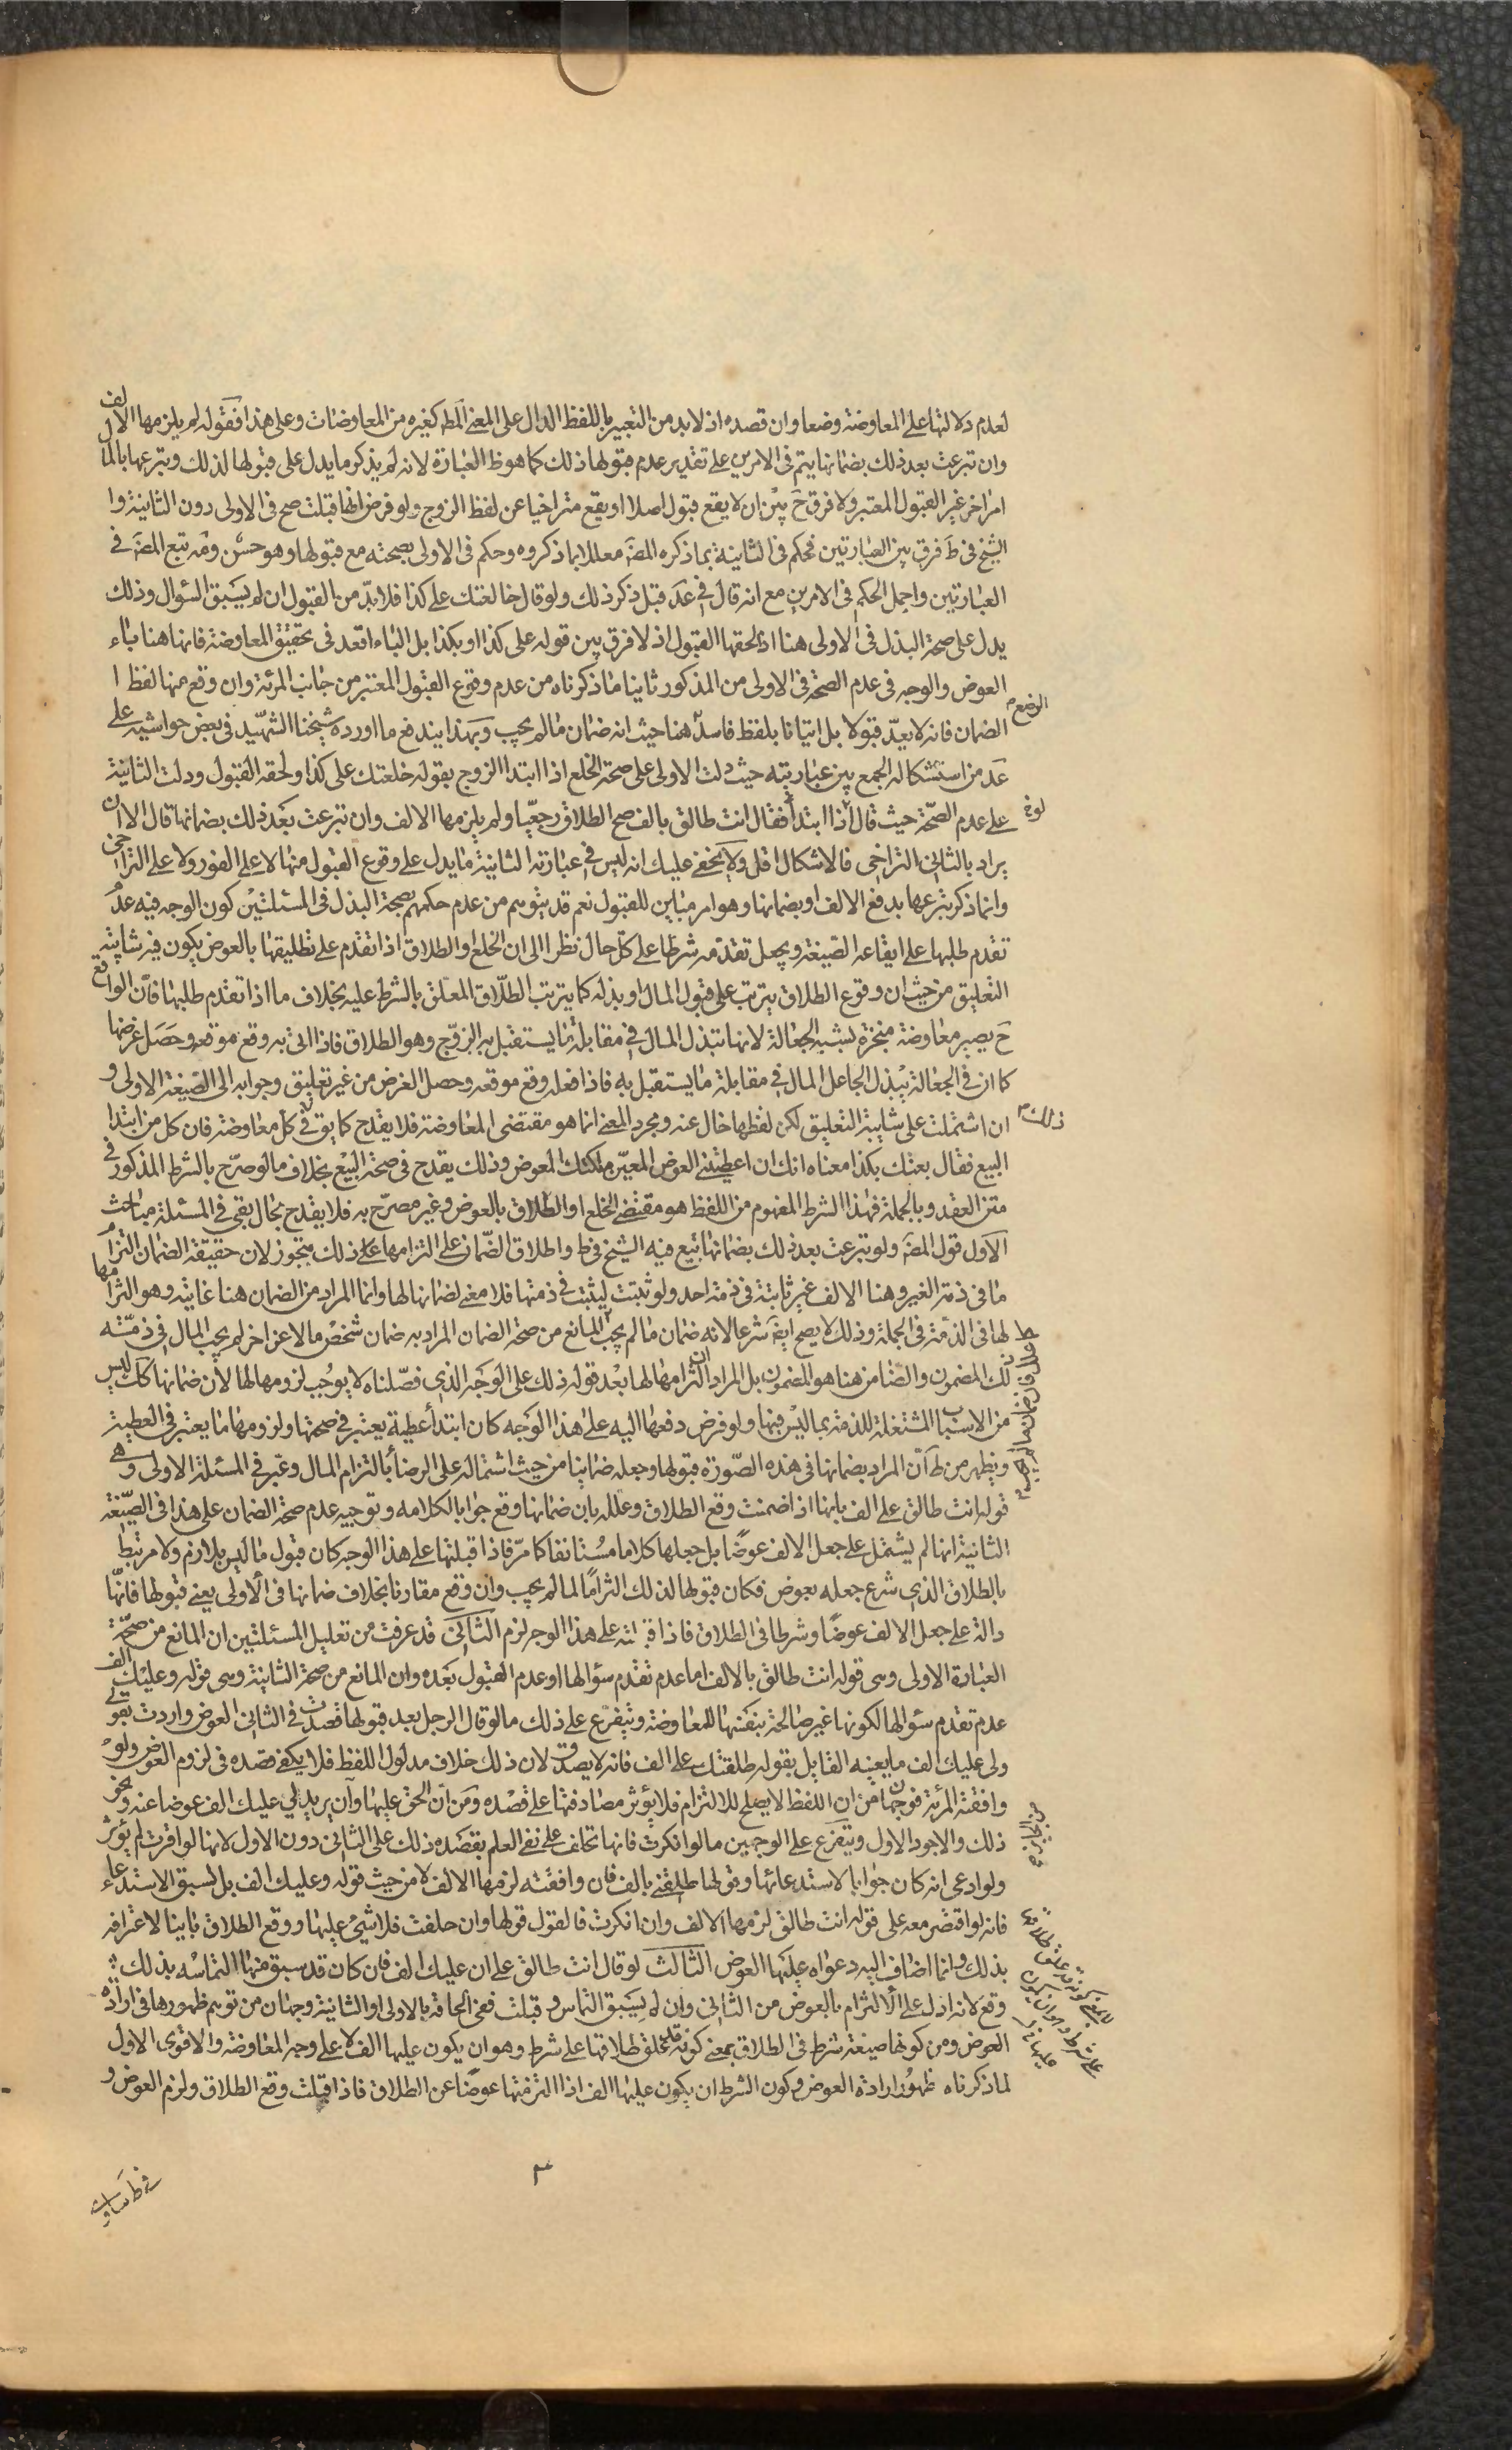 لعدم دلالتها على المعاوضة وضعا وان قصده اذ لا بد من التعبير باللفظ الدال على المعنى المط كغيره من المعاوضات وعلى هذا فقوله لم يلزمها الالف
وان تبرعت بعد ذلك بضمانها يتم فى الامرين على تقدير عدم قبولها ذلك كما هو ظ العبارة لانه لم يذكر ما يدل على قبولها لذلك وتبرعها بالمال
امر اخر غير القبول المعتبر ولا فرق ح بين ان لا يقع قبول اصلا او يقع متراخيا عن لفظ الزوج ولو فرض انها قبلت صح فى الاولى دون الثانية وا
الشيخ فى ط فرق بين العبارتين فحكم فى الثانية بما ذكره المصَ معللا بما ذكروه وحكم فى الاولى بصحته مع قبولها وهو حسن ومَه تبع المصَ فى
العبارتين واجمل الحكم فى الامرين مع انه قال فى عَد قبل ذكر ذلك ولو قال خالعتك على كذا فلا بدّ من القبول ان لم يسبق السؤال وذلك
يدل على صحة البذل فى الاولى هنا اذا لحقها القبول اذ لا فرق بين قوله على كذا او بكذا بل الباء اقعد فى تحقيق المعاوضة فانها هنا باء
العوض والوجه فى عدم الصحة فى الاولى من المذكور ثانيا ما ذكرناه من عدم وقوع القبول المعتبر من جانب المرئة وان وقع منها لفظ ا
الضمان فانه لا يعدّ قبولا بل اتيانا بلفظ فاسد هنا حيث انه ضمان ما لم يجب وبهذا يندفع ما اورده شيخنا الشهيد فى بعض حواشيه على
عَد من استشكاله الجمع بين عبارتيه حيث دلت الاولى على صحة الخلع اذا ابتدا الزوج بقوله خلعتك على كذا ولحقه القبول ودلت الثانية
على عدم الصّحة حيث قال اذا ابتدأ فقال انت طالق بالف صح الطلاق رجعيّا ولم يلزمها الالف وان تبرعت بعد ذلك بضمانها قال الا ان
يراد بالثانى التراخى فالاشكال اقل ولا يخفى عليك انه ليس فى عبارته الثانية ما يدل على وقوع القبول منها لا على الفور ولا على التراخى
وانما ذكر تبرعها بدفع الالف او بضمانها وهو امر مباين للقبول نعم قد يتوهم من عدم حكمهم بصحة البذل فى المسئلتين كون الوجه فيه عدم
تقدم طلبها على ايقاعه الصّيغة ويجعل تقدمه شرطا على كل حال نظرا الى ان الخلع او الطلاق اذا تقدم على تطليقها بالعوض يكون فيه شايبة
التعليق من حيث ان وقوع الطلاق يترتب على قبول المال او بذله كما يترتب الطلاق المعلق بالشرط عليه بخلاف ما اذا تقدم طلبها فان الواقع
ح يصير معاوضة منجزة يشبه الجعالة لانها تبذل المال فى مقابلة ما يستقبل به الزوج وهو الطلاق فاذا اتى به وقع موقعه وحصل غرضها
كما ان فى الجعالة يبذل الجاعل المال فى مقابلة ما يستقبل به فاذا فعله وقع موقعه وحصل الغرض من غير تعليق وجوابه الى الصّيغة الاولى و
ذلك ان اشتملت على شايبة التعليق لكن لفظها خال عنه ومجرد المعنى انما هو مقتضى المعاوضة فلا يقدح كما يق فى كل معاوضة فان كل من ابتدا
البيع فقال بعتك بكذا معناه انك ان اعطيتنى العوض المعيّن ملكتك المعوض وذلك لا يقدح فى صحة البيع بخلاف ما لو صرّح بالشرط المذكور فى
متن العقد وبالجملة فهذا الشرط المفهوم من اللفظ هو مقتضى الخلع او الطلاق بالعوض وغير مصرّح به فلا يقدح بحال بقى فى المسئلة مباحث
الاول قول المصَ ولو تبرعت بعد ذلك بضمانها تبع فيه الشيخ فى ط واطلاق الضّمان على التزامها على ذلك بتجوز لان حقيقة الضمان التزام
ما فى ذمة الغير وهنا الالف غير ثابتة فى ذمة احد ولو ثبتت لثبت فى ذمتها فلا معنى لضمانها لها وانما المراد من الضمان هنا غايته وهو التزامها
لها فى الذمة فى الجملة وذلك لا يصح ايضَ شرعا لانه ضمان ما لم يجب المانع من صحة الضمان المراد به ضمان شخص مالا عن اخر لم يجب المال فى ذمّته
لك المضمون والضامن هنا هو المضمون بل المراد ان التزامها لها بعد قوله ذلك على الوجه الذى فصّلناه لا يوجب لزومها لها لان ضمانها كك ليس
من الاسباب المشتغلة للذمة بما ليس فيها ولو فرض دفعها اليه على هذا الوجه كان ابتدأ عطية يعتبر فى صحتها ولزومها ما يعتبر فى العطية
ويظهر من ط ان المراد بضمانها فى هذه الصّورة قبولها وجعله ضمانا من حيث اشتماله على الرضا بالتزام المال وعبر فى المسئلة الاولى وهى
قوله انت طالق على الف بانها اذا ضمنت وقع الطلاق وعلله بان ضمانها وقع جوابا لكلامه وتوجيه عدم صحة الضمان على هذا فى الصّيغة
الثانية انها لم يشتمل على جعل الالف عوضًا بل جعلها كلاما مستانفا كما مرّ فاذا قبلتها على هذا الوجه كان قبول ما ليس بلازم ولا مرتبط
بالطلاق الذى شرع جعله بعوض فكان قبولها لذلك التزامًا لما لم يجب وان وقع مقارنا بخلاف ضمانها فى الاولى يعنى قبولها فانّها
دالة على جعل الالف عوضًا وشرطا فى الطلاق فاذا قبلته على هذا الوجه لزم الثانى قد عرفت من تعليل المسئلتين ان المانع من صحّة
العبارة الاولى وهى قوله انت طالق بالالف اما عدم تقدم سؤالها او عدم القبول بعده وان المانع من صحة الثانية وهى قوله وعليك الف
عدم تقدم سؤالها لكونها غير صالحة بنفسها للمعاوضة ويتفرّع على ذلك ما لو قال الرجل بعد قبولها قصدت فى الثانى العوض واردت بقولى
ولى عليك الف ما يعنيه القايل بقوله طلقتك على الف فانه لا يصدق لان ذلك خلاف مدلول اللفظ فلا يكفى قصده فى لزوم العوض ولو
وافقته المرئة فوجهان من ان اللفظ لا يصلح للالتزام فلا يؤثر مصادقتها على قصده ومن ان الحق عليها وان يريد لى عليك الف عوضا عنه ونحو
ذلك والاجود الاول ويتفرع على الوجهين ما لو انكرت فانها تحلف على نفى العلم بقصده ذلك على الثانى دون الاول لانها لو اقرت لم يؤثر
ولو ادعى انه كان جوابا لاستدعائها وقولها طلقنى بالف فان وافقته لزمها الالف لا من حيث قوله وعليك الف بل لسبق الاستدعاء
فانه لو اقتصر معه على قوله انت طالق لزمها الالف وان انكرت فالقول قولها وان حلفت فلا شئ عليها ووقع الطلاق باينا لاعترافه
بذلك وانما اضاف اليه دعواه عليها العوض الثالث لو قال انت طالق على ان عليك الف فان كان قد سبق منها التماسه بذلك
وقع لانه ادل على الالتزام بالعوض من الثانى وان لم يسبق التماس وقبلت ففى الحاقه بالاولى او الثانية وجهان من توهم ظهورها فى ارادة
العوض ومن كونها صيغة شرط فى الطلاق بمعنى كونه قد علق طلاقها على شرط وهو ان يكون عليها الف لا على وجه المعاوضة والاقوى الاول
لما ذكرناه ظهور ارادة العوض وكون الشرط ان يكون عليها الف اذا التزمتها عوضًا عن الطلاق فاذا قبلت وقع الطلاق ولزم العوض و